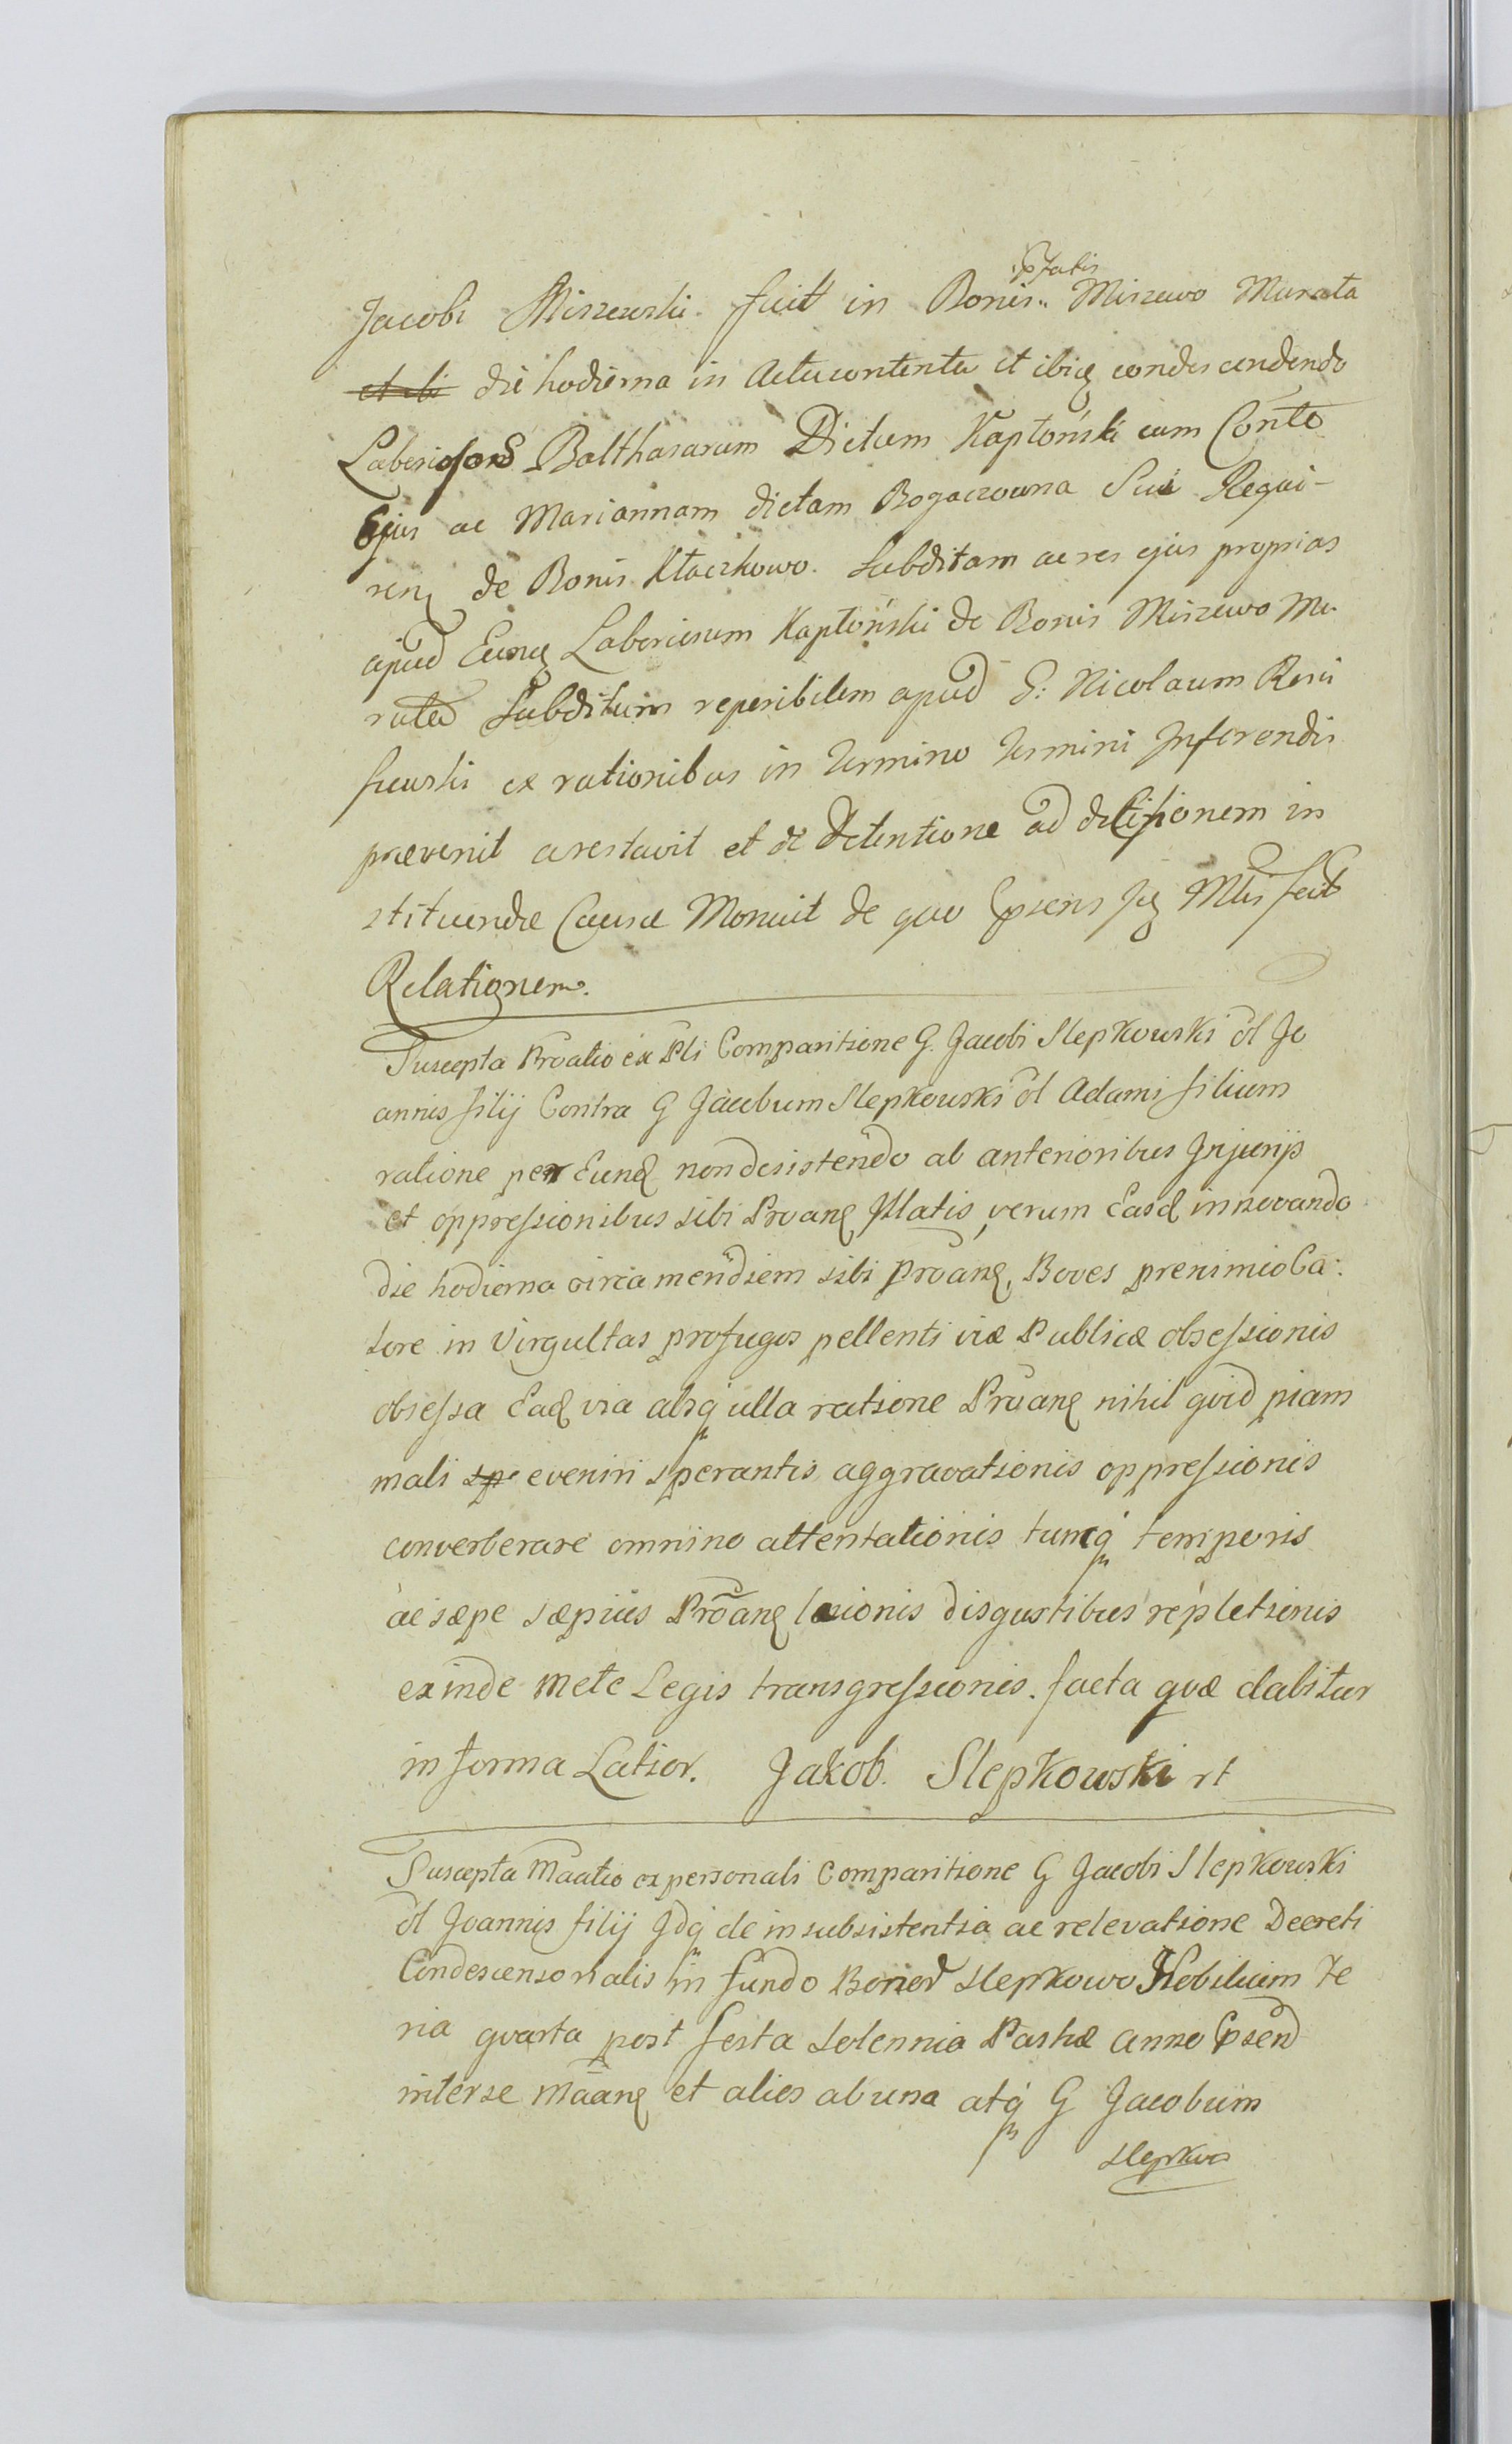 Jacobi Miszewski fuit in Bonis pfatis Miszewo Murata
et ibi die hodierna in Actu contenta et ibiq condescendendo
Laboriosos Balthasarum Dictum Kaptoński cum Conte
Ejus ac Mariannam dictam Bogaczowna Sui Requi-
ren de Bonis Kłaczkowo Subditam ac res ejus proprias
apud Eunq Laboriosum Kaptoński de Bonis Miszewo Mu-
rata Subditum reperibilem apud G: Nicolaum
ex rationibus in Termino Termini Inferendis
prævenit arestavit et de Detentione ad decisionem in
stituendæ Causæ Monuit de quo Epsens Mlis fecit
Relationem.
Suscepta Proatio ex Pli Comparitione G. Jacobi Slepkowski ol Jo
annis filij Contra G Jacobum Slepkowski ol Adami filium
ratione per Eunq non desistendo ab anterioribus Injurijs
et oppressionibus sibi Proanq Illatis, verum Easq innovando
die hodierna circa meridiem sibi Proanq, Boves prenimio Ca-
lore in Virgultas profugos pellenti viæ Publicæ obsessionis
obsessa Eaq via absq ulla ratione Proanq nihil quid piam
mali sp eveniri sperantis aggravationis oppressionis
converberare omnino attentationis tumq temporis
ac sæpe sæpius Proanq læsionis disgustibus repletionis
exinde Metæ Legis transgressionis. facta quæ dabitur
in forma Latior. Jakob. Slepkowski rt
Suscepta Maatio ex personali Comparitione G Jacobi Slepkowski
ol Joannis filij Idq de insubsistentia ac relevatione Decreti
Condescensorialis in fundo Bonor Slepkowo Nobilium Fe
ria quarta post festa Solennia Paschæ Anno Epsend
inter se Maanq et alios ab una atq G Jacobum
Slepkows